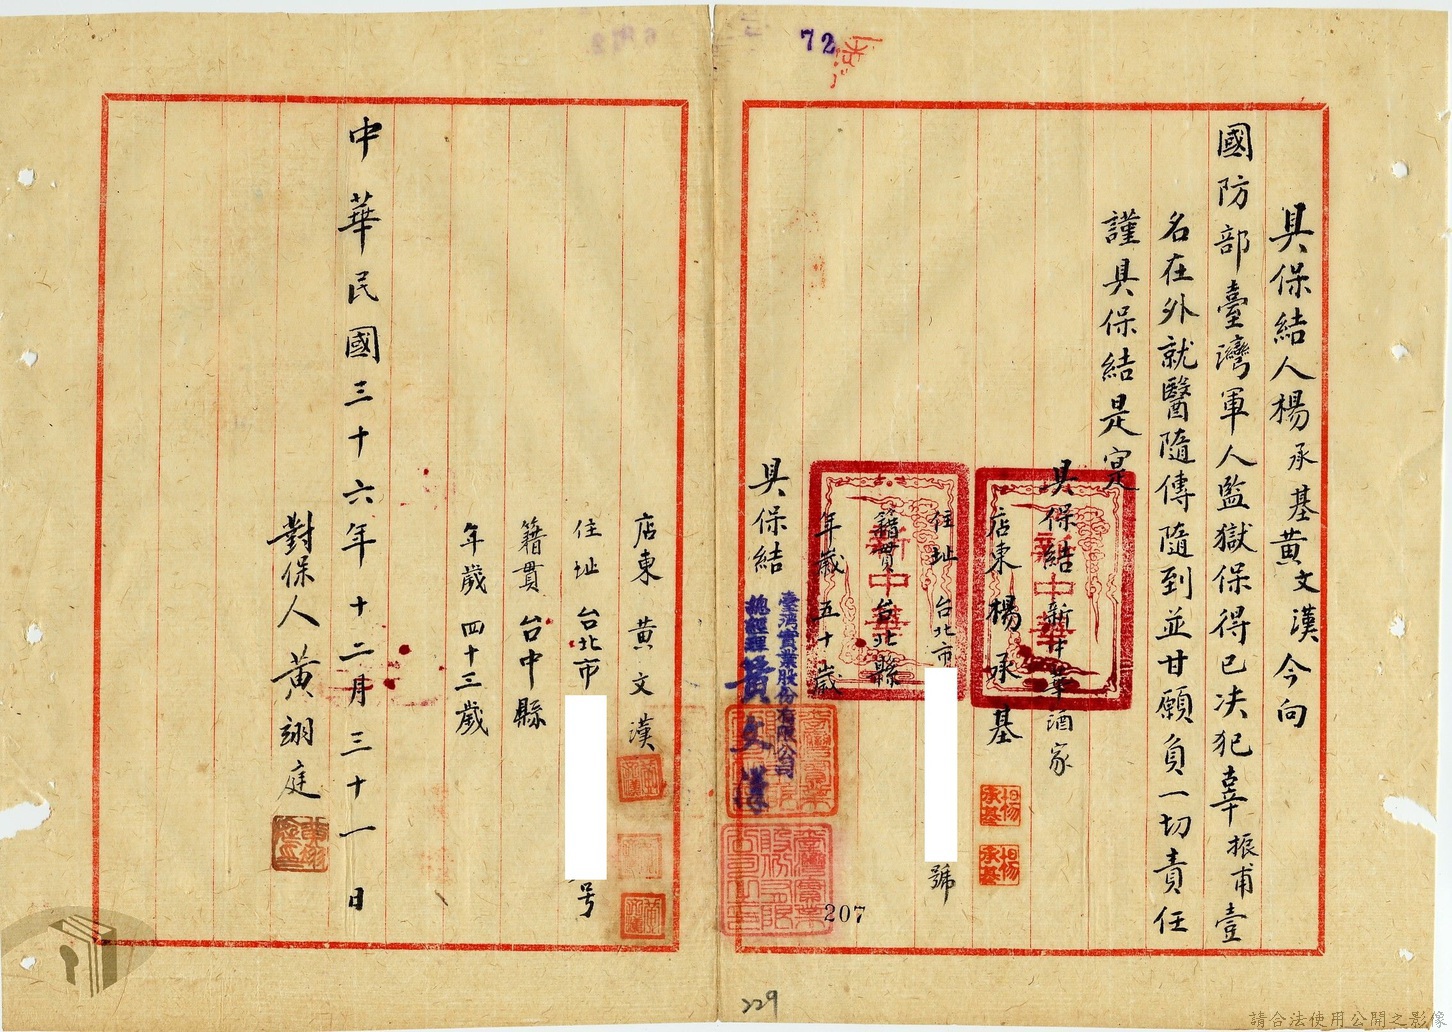 72
具保結人楊承基黃文漢今向
國防部臺灣軍人監獄保得已决犯辜振甫壹
名在外就醫隨傳隨到並甘願負一切責任
謹具保結是寔
具保結 新中華酒家
店東 楊承基
楊承基
楊承基
住址 台北市
號
籍貫 台北縣
年歲 五十歲
新中華
新中華
具保結
臺灣實業股份有限公司
總經理 黃文漢
207
店東 黃文漢
住址 台北市
号
籍貫 台中縣
年歲 四十三歲
中華民國三十六年十二月三十一日
對保人 黃翊庭
229
請合法使用公開之影像